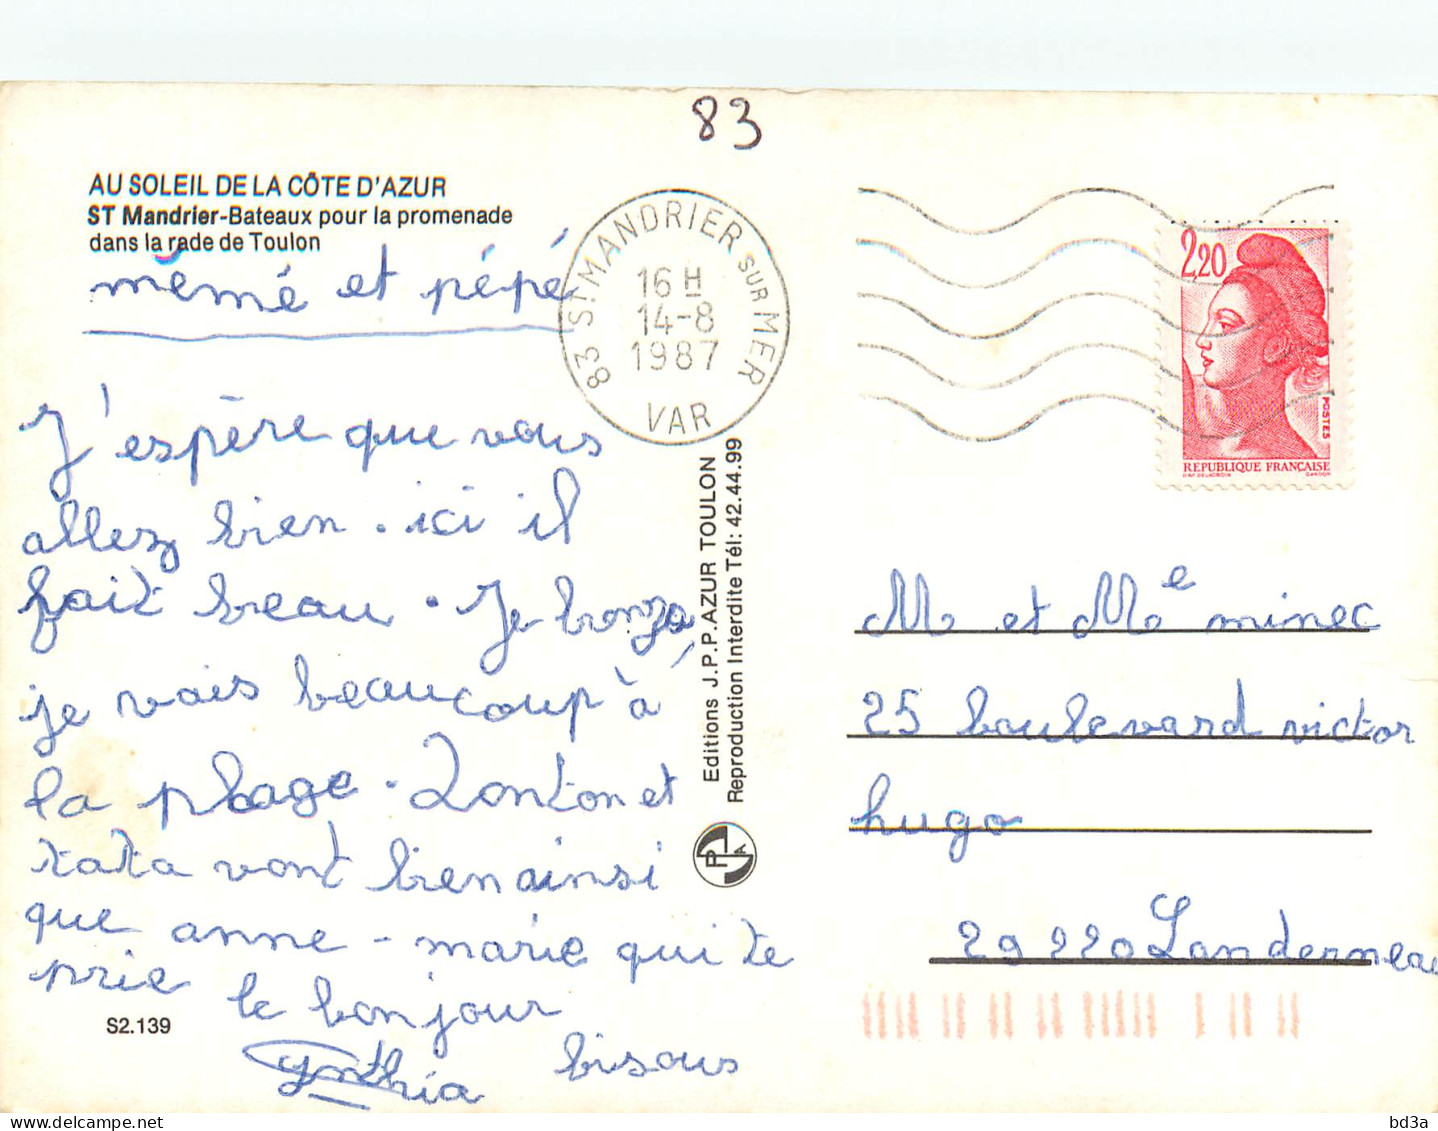 83
AU SOLEIL DE LA CÔTE D'AZUR
ST Mandrier-Bateaux pour la promenade
dans la rade de Toulon
mémé et pépé
J'espère que vous
allez bien. ici il
fait beau. Je bronze
je vais beaucoup à
la plage. Tonton et
tata vont bien ainsi
que anne-marie qui te
prie le bonjour
bisous
Cynthia
S2.139
83 ST MANDRIER SUR MER
16 H
14-8
1987
VAR
Editions J.P.P. AZUR TOULON
Reproduction Interdite Tél: 42.44.99
PPA
2,20
POSTES
REPUBLIQUE FRANÇAISE
D'AP. DELACROIX GANDON
M et Me minec
25 boulevard victor
hugo
29220 Landerneau
bd3a